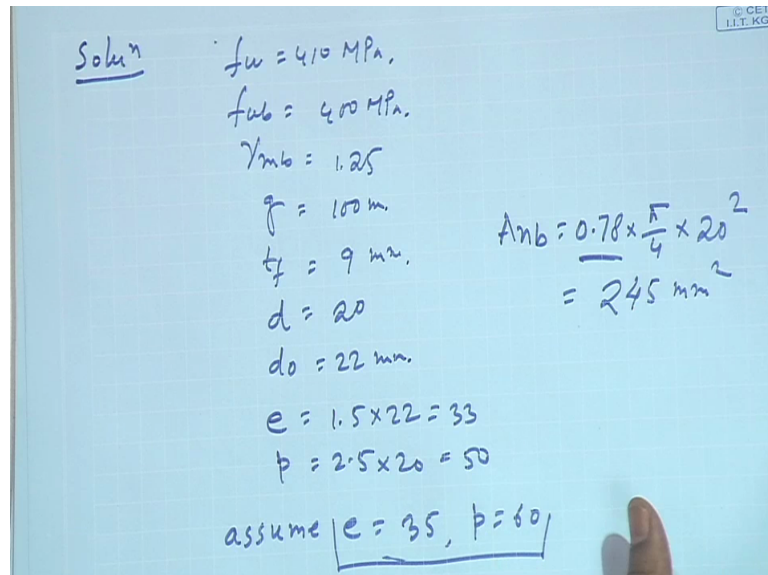 © CET
I.I.T. KG
Soluⁿ
fu = 410 MPa.
fub = 400 MPa.
γmb = 1.25
g = 100 m.
tf = 9 mm.
d = 20
do = 22 mm.
e = 1.5×22 = 33
p = 2.5×20 = 50
assume e = 35, p = 60
Anb = 0.78 × π/4 × 20²
= 245 mm²